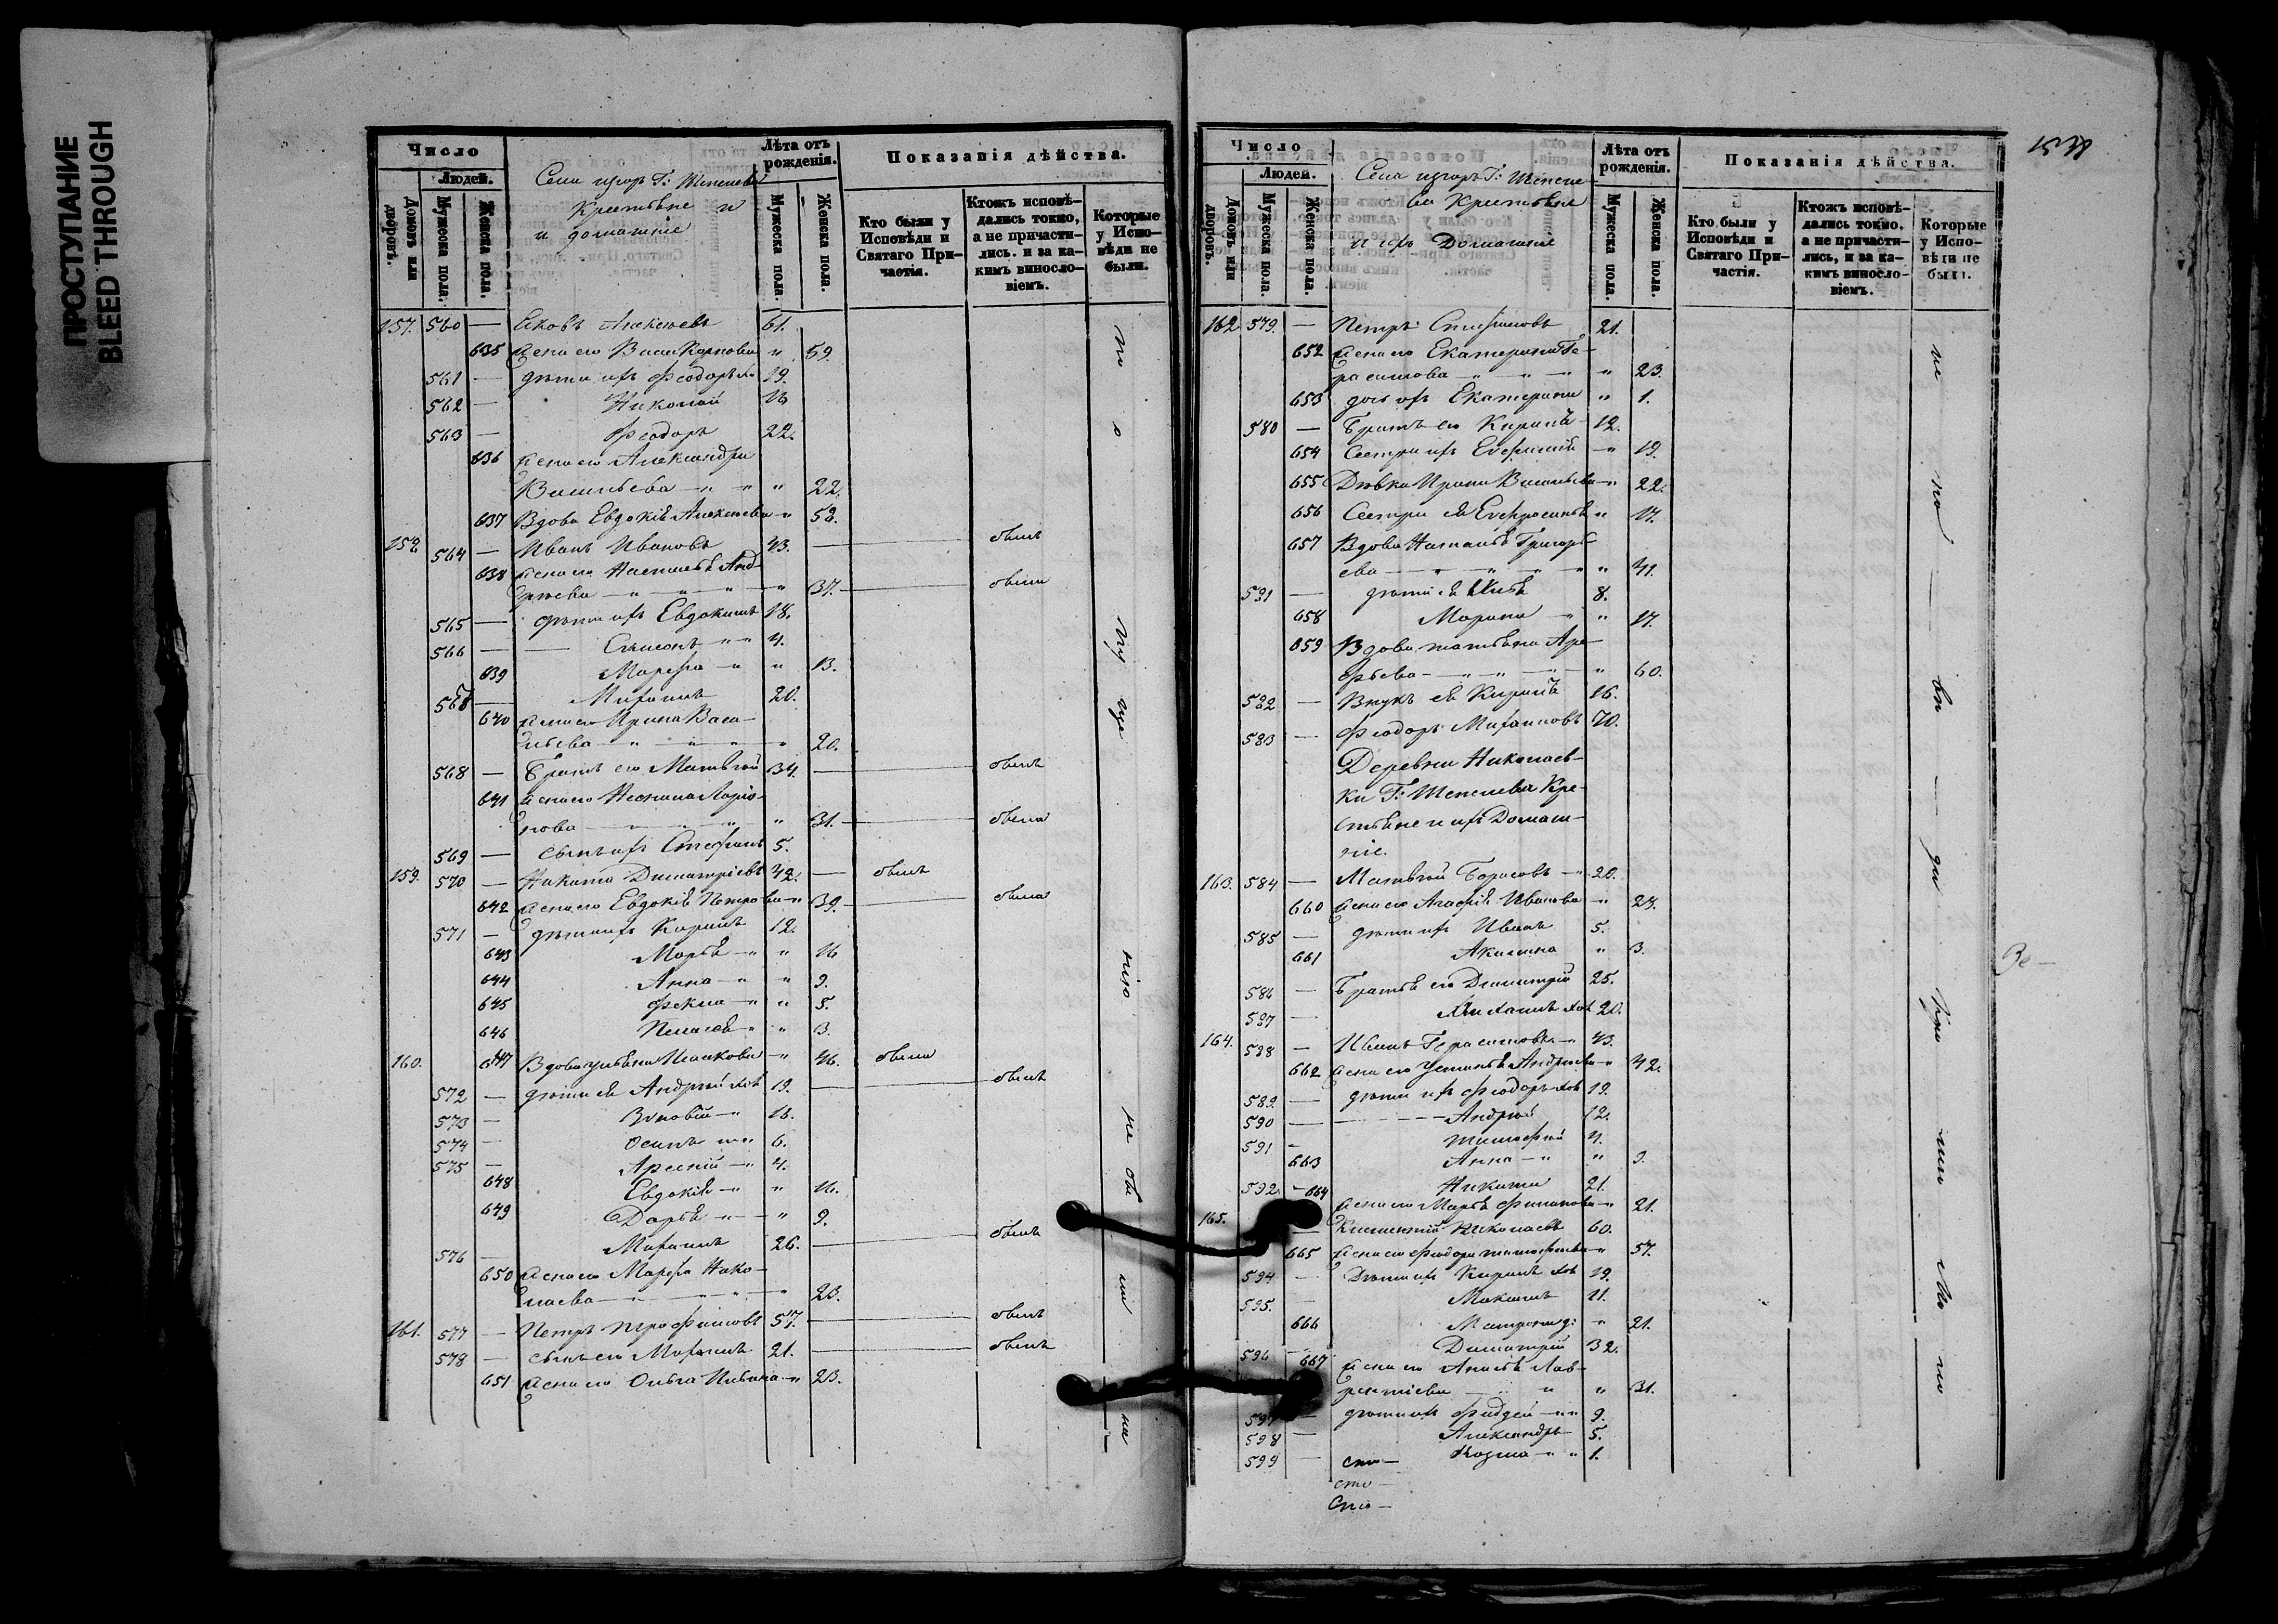 ПРОСТУПАНИЕ
BLEED THROUGH
Число
Людей.
Домовъ или дворовъ.
Мужеска пола.
Женска пола.
Села Г: Шепелева
Крестьяне и
и домашніе
Лѣта отъ рожденія.
Мужеска пола.
Женска пола.
Показанія дѣйства.
Кто были у Исповѣди и Святаго Причастія.
Ктожъ исповѣдались токмо, а не причастились. и за какимъ винословіемъ.
Которые у Исповѣди не были.
157. 560 — Яковъ Алексѣевъ 61.
635 Жена его Васса Карпова " 59.
561 — дѣти ихъ Феодоръ 19.
562 — Николай 16
563 — Феодоръ 22.
636 Жена его Александра
Васильева — " — " " 22.
637 Вдова Евдокія Алексѣева " 58.
158 564 — Иванъ Ивановъ 43. — былъ
638 Жена его Наталья Анд-
рѣева — " — " — " 37. — была
565 — дѣти ихъ Евдокимъ 18.
566 — Симеонъ " " 4.
639 Марѳа — " " 13.
567 — Михаилъ 20.
640 Жена его Ирина Васи-
льева — " — " — " 20.
568 — Братъ его Матвѣй 34. — былъ
641 Жена его Неонила Ларіо-
нова — " 31. — была
569 — сынъ ихъ Стефанъ 5.
159. 570 — Никита Димитріевъ 42. — былъ
642 Жена его Евдокія Петрова " 39. — была
571 — дѣти ихъ Кириллъ 12.
643 Марья — " " 16
644 Анна — " " 9.
645 Фекла — " " 5.
646 Пелагея — " " 3.
160. 647 Вдова Ульяна Исакова — " 46. была
572 — дѣти ея Андрей 19. — былъ
573 — Зиновій — " 16.
574 — Осипъ — " 6.
575 — Арсеній — " 4.
648 Евдокія — " " 16.
649 Дарья — " — " 9.
576 — Михаилъ 26. — былъ
650 Жена его Марѳа Нико-
лаева — " — " — " 23.
161. 577 — Петръ Трофимовъ 57. — былъ
578 — сынъ его Михаилъ 21. — былъ
651 Жена его Ольга " 23.
по
о
ну
не
бы
ли
Число
Людей.
Домовъ или дворовъ.
Мужеска пола.
Женска пола.
Села Г: Шепеле-
ва Крестьяне
и ихъ Домашніе
Лѣта отъ рожденія.
Мужеска пола.
Женска пола.
Показанія дѣйства.
Кто были у Исповѣди и Святаго Причастія.
Ктожъ исповѣдались токмо, а не причастились, и за какимъ винословіемъ.
Которые у Исповѣди не были.
162 579. — Петръ 21.
652 Жена его Екатерина Ге-
расимова — " — " — " " 23.
653 дочь ихъ Екатерина " 1.
580 — Братъ его Кириллъ 12.
654 Сестра ихъ Евфимія — " 19.
655 Дѣвка Ирина Васильева — " 22.
656 Сестра ея Евфросинья " 17.
657 Вдова Наталья Григорь-
ева — " — " — " " 41.
581 — дѣти ея 8.
658 Марина " " 17.
659 Вдова Татьяна
— " — " " 60.
582 — Внукъ ея Кириллъ 16.
583 — Феодоръ Михаиловъ 70.
Деревни Николаев-
ки Г: Шепелева Кре-
стьяне и ихъ Домаш-
ніе.
163. 584 — Матвѣй Борисовъ — " 20.
660 Жена его Агафія Иванова — " 23.
585 — дѣти ихъ Иванъ 5.
661 Акилина " 3.
586 — Братья его Димитрій 25.
587 — Михаилъ 20.
164. 588 — Иванъ Герасимовъ — " 43.
662 Жена его Устинья Андреева — " 42.
589. — дѣти ихъ Феодоръ 19.
590 — Андрей 12.
591 — Тимофей 4.
663 Анна — " " 9.
592 — Никита 21.
664 Жена его Марья Филипова — " 21.
165. — Климентій Николаевъ 60.
665 Жена его Феодора Тимофеева — " 57.
594 — Дѣти ихъ Кириллъ 19.
595. — Максимъ 11.
666 Матрона " 21.
596 — Димитрій 32.
667 Жена его Лав-
рентіева " " 31.
597 — дѣти ихъ Фаддей — " " 9.
598 — Александръ 5.
599 — Козма — " " 1.
не
по
ли